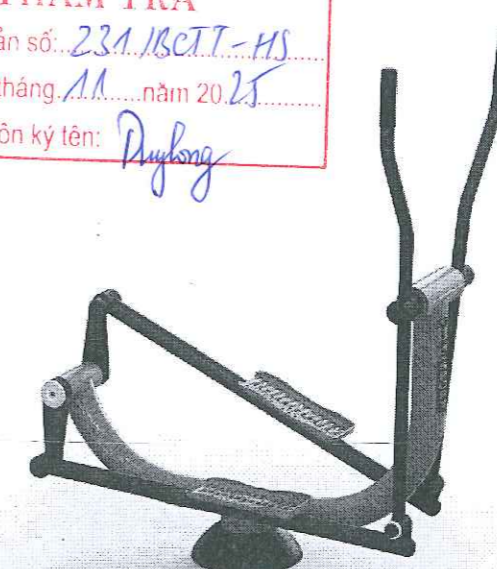 THẨM TRA
ản số: 231/BCTT-HS
tháng 11 năm 2025
ôn ký tên: Duylong